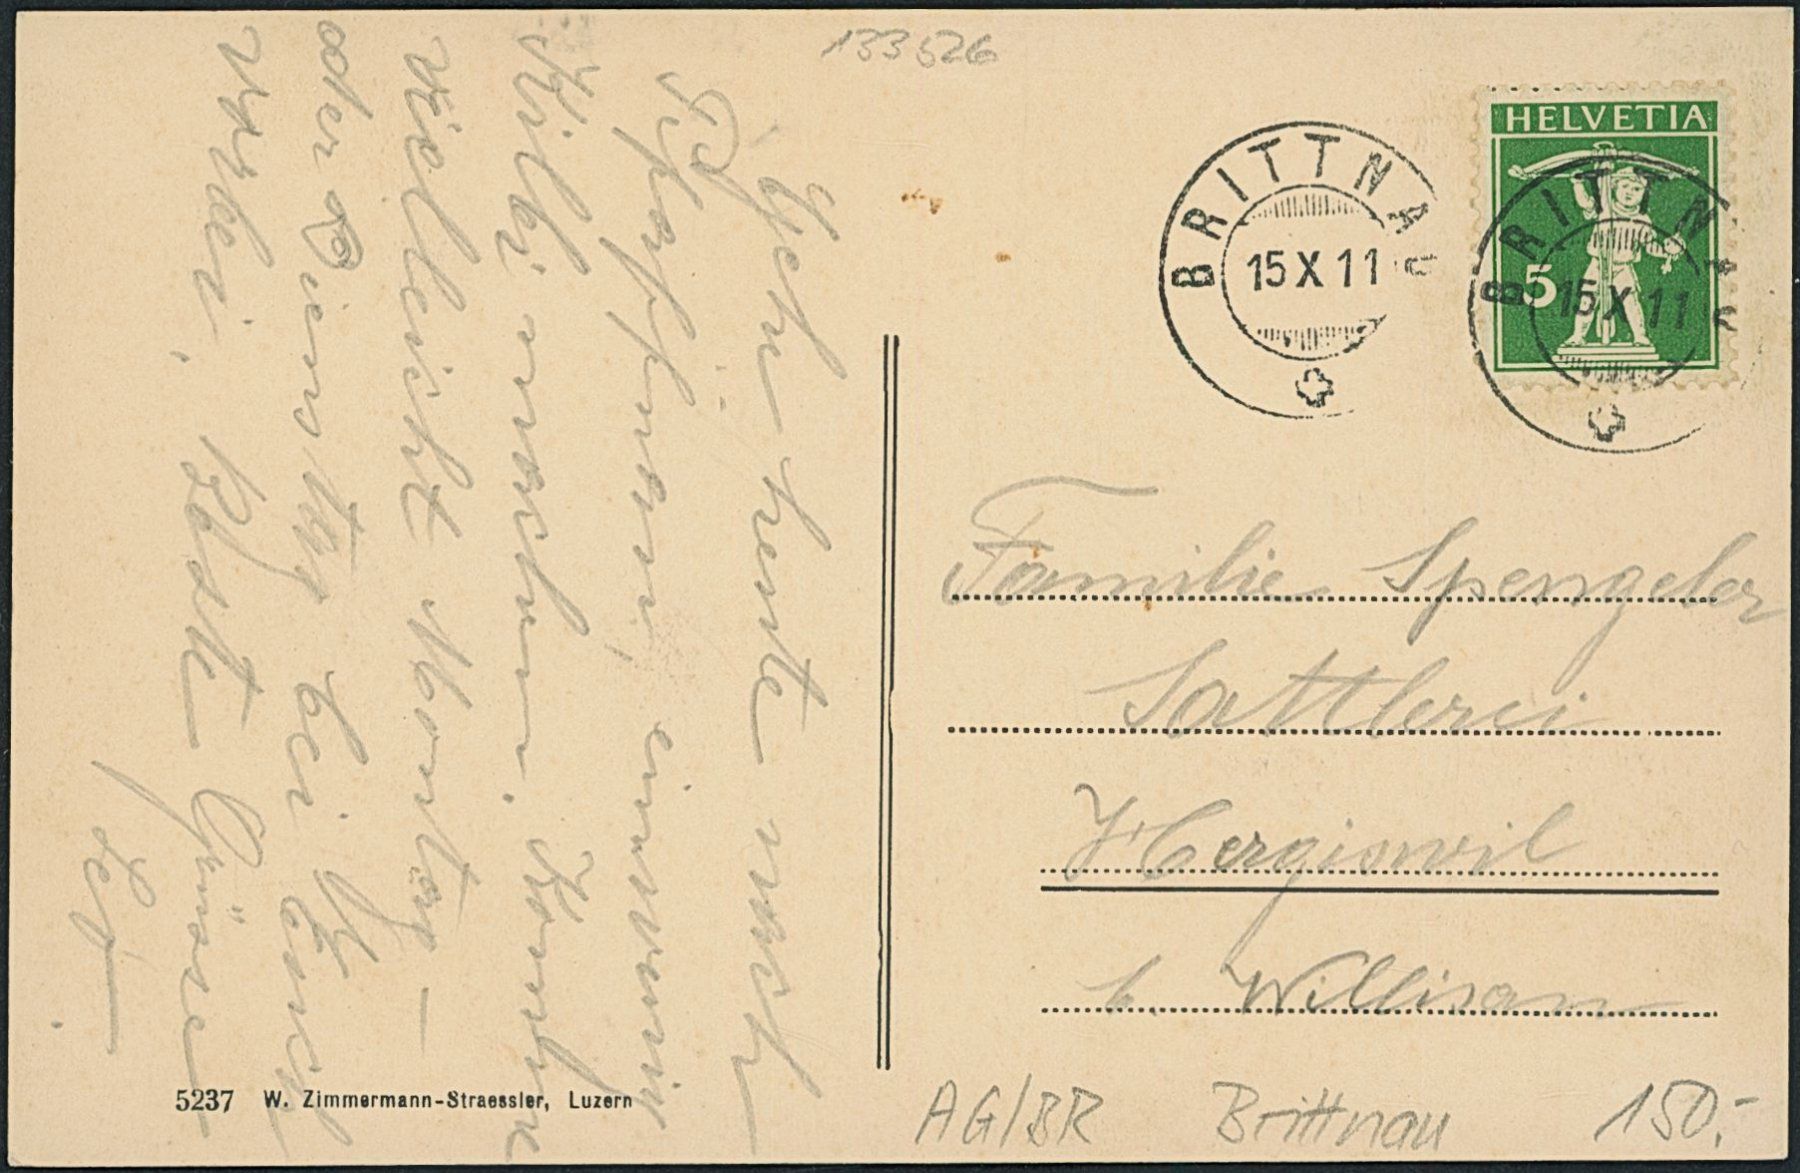 133526
HELVETIA
5
BRITTNAU
15 X 11
BRITTNAU
15 X 11
Gehe heute nach
Pfaffnau, einwenig
Kilbi machen. Komme
vielleicht Montag
oder Dienstag bei Euch
vorbei. Beste Grüsse
Familie Spengeler
Sattlerei
Hergiswil
b. Willisau
5237 W. Zimmermann-Straessler, Luzern
AG/BR Brittnau 150.-